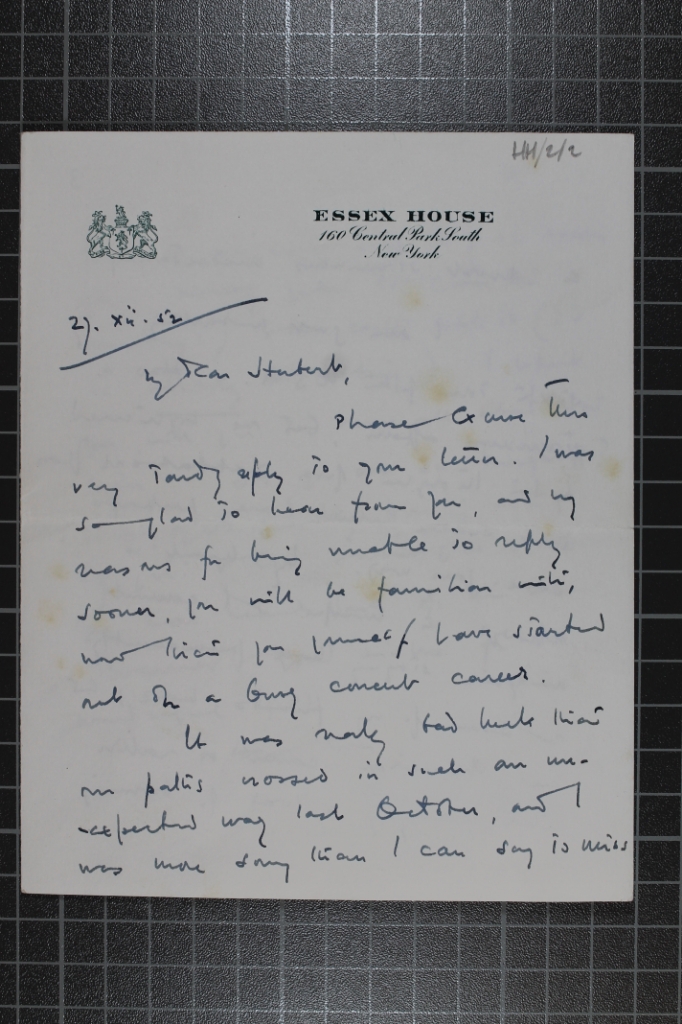 HH/2/2
ESSEX HOUSE
160 Central Park South
New York
27. XII. 52
My Dear Herbert,
Please excuse this
very tardy reply to your letter. I was
so glad to hear from you, and my
reasons for being unable to reply
sooner, you will be familiar with,
now that you yourself have started
out on a busy concert career.
It was really bad luck that
our paths crossed in such an un-
-expected way last October, and I
was more sorry than I can say to miss